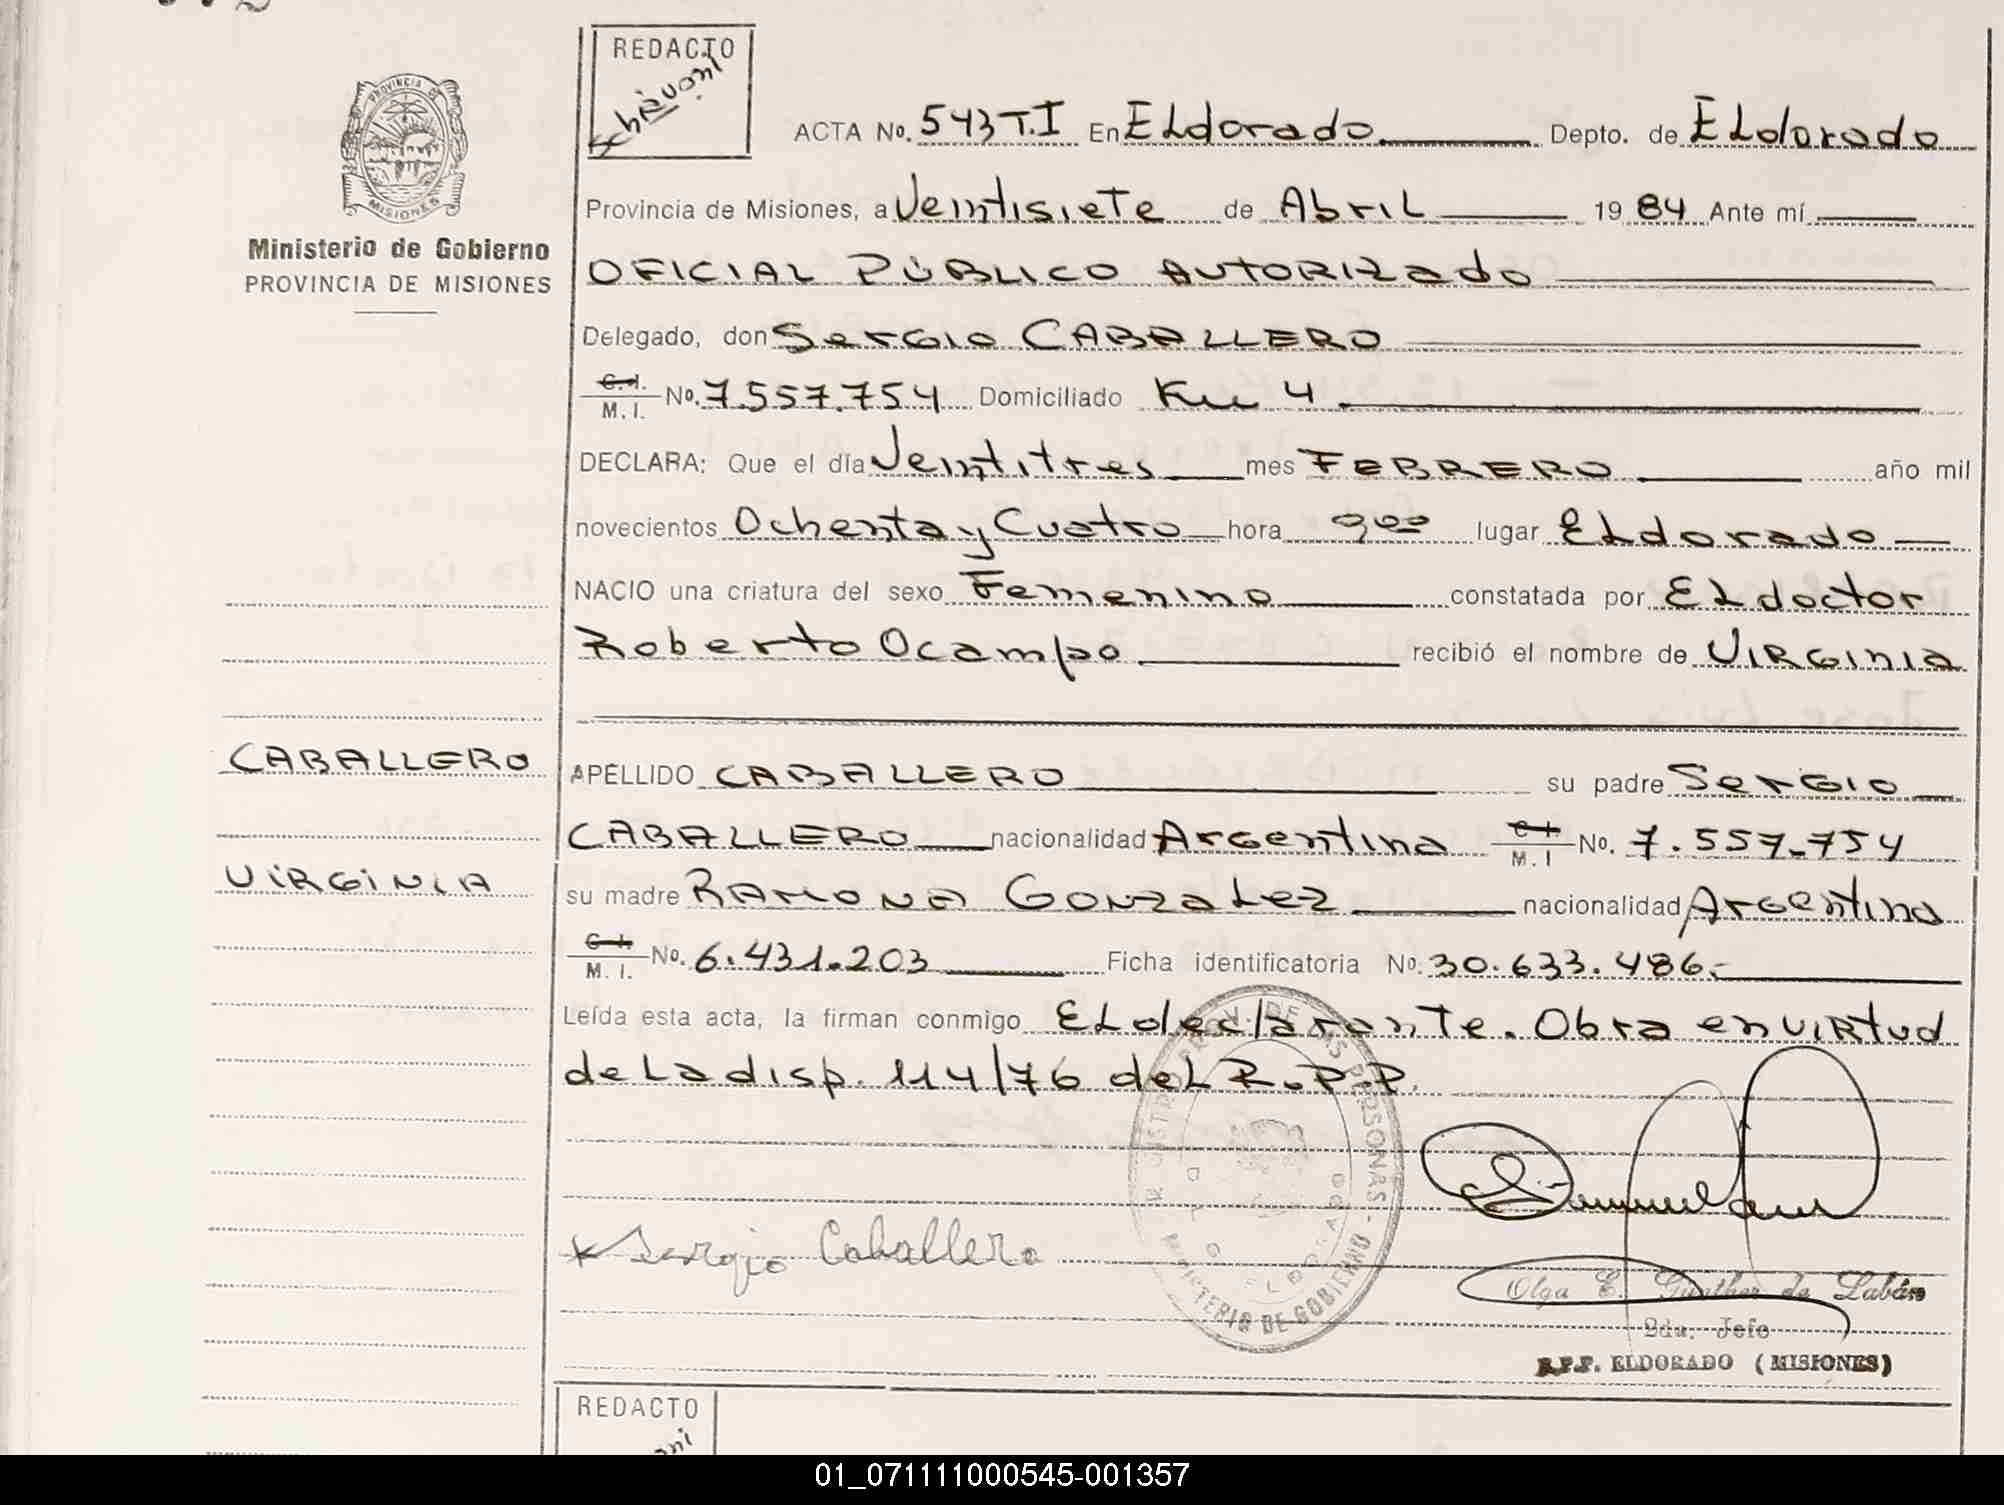 REDACTO
ACTA No. 543 T.I En ELdorado Depto. de ELdorado
PROVINCIA DE
MISIONES
Provincia de Misiones, a Veintisiete de Abril 19 84 Ante mí
Ministerio de Gobierno
PROVINCIA DE MISIONES
OFICIAL PÚBLICO AUTORIZado
Delegado, don Sergio CABALLERO
C.I. M.I. No. 7.557.754 Domiciliado Km 4
DECLARA: Que el día Veintitres mes FEBRERO año mil
novecientos Ochenta y Cuatro hora 9 00 lugar ELdorado
NACIO una criatura del sexo Femenino constatada por EL doctor
Roberto Ocampo recibió el nombre de VIRGINIA
CABALLERO
APELLIDO CABALLERO su padre Sergio
CABALLERO nacionalidad Argentina C.I. M.I No. 7.557.754
VIRGINIA
su madre RAMONA GONZALEZ nacionalidad Argentina
C.I. M.I. No. 6.431.203 Ficha identificatoria No. 30.633.486.-
Leída esta acta, la firman conmigo EL declarante. Obra en virtud
de La disp. 114/76 deL R.P.P.
Sergio Caballero
PROV. DE LAS PERSONAS - MINISTERIO DE GOBIERNO
ELDORADO
Olga E. Günther de Labán
2da. Jefe
R.P.P. ELDORADO (MISIONES)
REDACTO
01_071111000545-001357